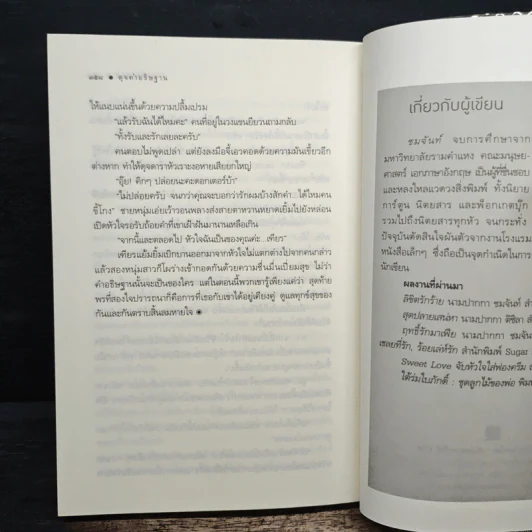 ๓๕๘ ● ดุจคำอธิษฐาน
ให้แนบแน่นขึ้นด้วยความปลื้มเปรม
"แล้วรับฉันได้ไหมคะ" คนที่อยู่ในวงแขนยียวนถามกลับ
"ทั้งรับและรักเลยละครับ"
คนตอบไม่พูดเปล่า แต่ยังลงมือจี้เอวคอดด้วยความมันเขี้ยวอีก
ต่างหาก ทำให้ดุจดาราหัวเราะงอหายเสียยกใหญ่
"อุ๊ย! คิกๆ ปล่อยนะคะดอกเตอร์บ้า"
"ไม่ปล่อยครับ จนกว่าคุณจะบอกว่ารักผมบ้างสักคำ...ได้ไหมคน
ขี้โกง" ชายหนุ่มเอ่ยเร้าวอนพลางส่งสายตาหวานหยาดเยิ้มไปยังหล่อน
เปิดหัวใจรอรับถ้อยคำที่เขาเฝ้าฝันมานานเหลือเกิน
"จากนี้และตลอดไป หัวใจฉันเป็นของคุณค่ะ...เทียร"
เทียรแย้มยิ้มเบิกบานออกมาจากหัวใจไม่แตกต่างไปจากคนกล่าว
แล้วสองหนุ่มสาวก็โผร่างเข้ากอดกันด้วยความชื่นมื่นเปี่ยมสุข ไม่ว่า
คำอธิษฐานนั้นจะเป็นของใคร แต่ในตอนนี้พวกเขารู้เพียงแค่ว่า สุดท้าย
พรที่สองใจปรารถนาก็คือการที่เธอกับเขาได้อยู่เคียงคู่ ดูแลทุกข์สุขของ
กันและกันตราบสิ้นลมหายใจ ◉
เกี่ยวกับผู้เขียน
ชมจันท์ จบการศึกษาจาก
มหาวิทยาลัยรามคำแหง คณะมนุษย-
ศาสตร์ เอกภาษาอังกฤษ เป็นผู้ที่ชื่นชอบ
และหลงใหลแวดวงสิ่งพิมพ์ ทั้งนิยาย
การ์ตูน นิตยสาร และพ็อกเกตบุ๊ก
รวมไปถึงนิตยสารทุกหัว จนกระทั่ง
ปัจจุบันตัดสินใจผันตัวจากงานโรงแรม
หนังสือเล็กๆ ซึ่งถือเป็นจุดกำเนิดในการ
นักเขียน
ผลงานที่ผ่านมา
ลิขิตรักร้าย นามปากกา ชมจันท์
สุดปลายแสนหา นามปากกา
ฤทธิ์รักมาเฟีย นามปากกา ชมจัน
เชลยที่รัก, ร้อยเล่ห์รัก สำนักพิมพ์ Sugar
Sweet Love จับหัวใจใส่ฟองครีม
ได้ร่มใบภักดิ์ : ชุดลูกไม้ของพ่อ พิม